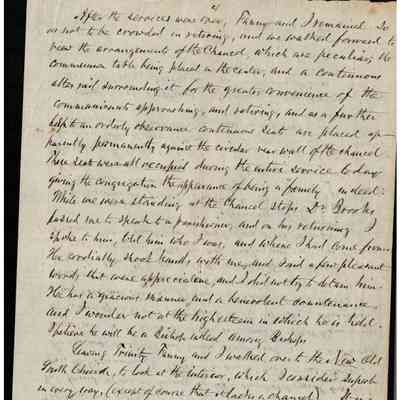 After the services were over, Fanny and I remained so
as not to be crowded in retiring, and we walked forward to
view the arrangements of the Chancel, which are peculiar, the
communion table being placed in the center, and a continuous
altar rail surrounding it for the greater convenience of the
communicants approaching, and retiring, and as a further
help to an orderly observance continuous seats are placed ap-
parently permanently against the circular rear wall of the chancel
These seats were all occupied during the entire service to day
giving the congregation the appearance of being a family indeed.
While we were standing at the Chancel steps Dr Brooks
passed me to speak to a parishioner, and on his returning I
spoke to him, told him who I was, and where I had come from.
He cordially shook hands with me, and said a few pleasant
words that were appreciative, and I did not try to detain him.
He has a gracious manner and a benevolent countenance
and I wonder not at the high esteem in which he is held.
I believe he will be a Bishop indeed among Bishops
Leaving Trinity Fanny and I walked over to the New Old
South Church, to look at the interior, which I consider superb
in every way, (except of course that it lacks a chancel)